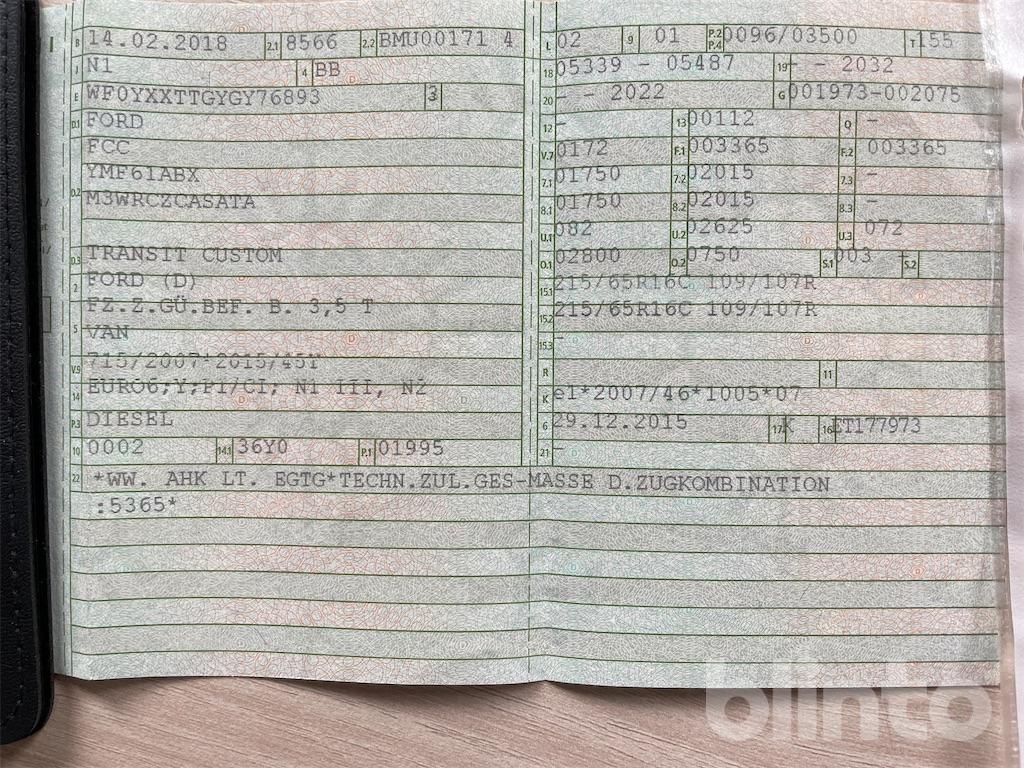 B 14.02.2018 2.1 8566 2.2 BMU00171 4
J N1 4 BB
E WF0YXXTTGYGY76893 3
D.1 FORD
FCC
D.2 YMF61ABX
M3WRCZCASATA
D.3 TRANSIT CUSTOM
2 FORD (D)
FZ.Z.GÜ.BEF. B. 3,5 T
5 VAN
V.9 715/2007*2015/45Y
14 EURO6;Y;PI/CI; N1 III, N2
P.3 DIESEL
10 0002 14.1 36Y0 P.1 01995
L 02 9 01 P.2 P.4 0096/03500 T 155
18 05339 - 05487 19 - - 2032
20 - - 2022 G 001973-002075
12 - 13 00112 Q -
V.7 0172 F.1 003365 F.2 003365
7.1 01750 7.2 02015 7.3 -
8.1 01750 8.2 02015 8.3 -
U.1 082 U.2 02625 U.3 072
O.1 02800 O.2 0750 S.1 003 S.2
15.1 215/65R16C 109/107R
15.2 215/65R16C 109/107R
15.3 -
R 11
K e1*2007/46*1005*07
6 29.12.2015 17 K 16 ET177973
21
22 *WW. AHK LT. EGTG*TECHN.ZUL.GES-MASSE D.ZUGKOMBINATION
:5365*
blinto